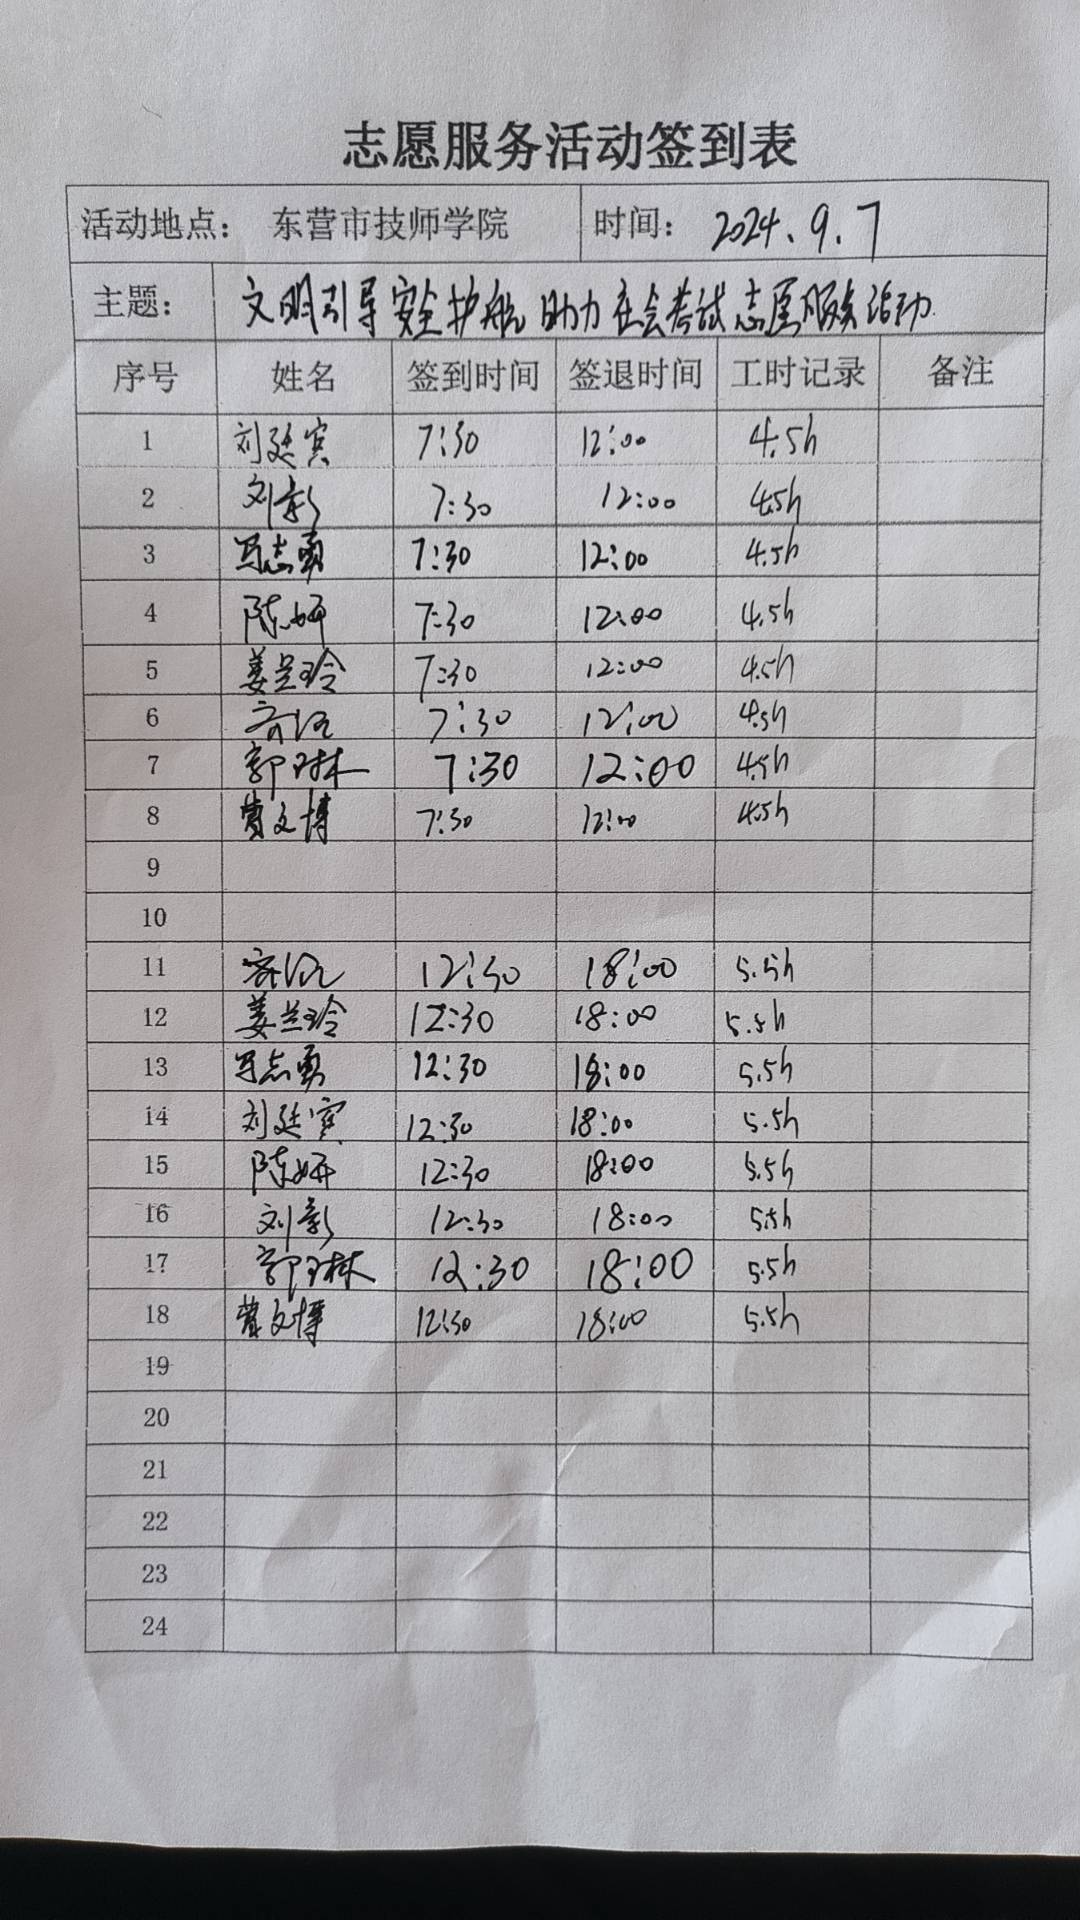 志愿服务活动签到表
活动地点： 东营市技师学院 时间： 2024.9.7
主题： 文明引导 安全护航 助力社会考试志愿服务活动.
序号 姓名 签到时间 签退时间 工时记录 备注
1 刘廷宾 7:30 12:00 4.5h
2 刘彰 7:30 12:00 4.5h
3 马志勇 7:30 12:00 4.5h
4 陈妍 7:30 12:00 4.5h
5 姜兰玲 7:30 12:00 4.5h
6 7:30 12:00 4.5h
7 郭琳 7:30 12:00 4.5h
8 曹文博 7:30 12:00 4.5h
9
10
11 12:30 18:00 5.5h
12 姜兰玲 12:30 18:00 5.5h
13 马志勇 12:30 18:00 5.5h
14 刘廷宾 12:30 18:00 5.5h
15 陈妍 12:30 18:00 5.5h
16 刘彰 12:30 18:00 5.5h
17 郭琳 12:30 18:00 5.5h
18 曹文博 12:30 18:00 5.5h
19
20
21
22
23
24